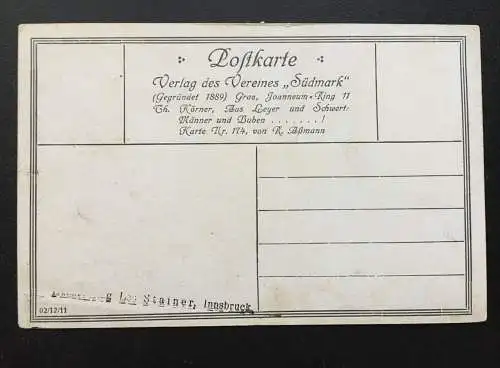 Postkarte
Verlag des Vereines „Südmark“
(Gegründet 1889) Graz, Joanneum-Ring 11
Th. Körner, Aus Leyer und Schwert:
Männer und Buben . . . . . . . !
Karte Nr. 174, von R. Aßmann
Stainer, Innsbruck
02/12/11